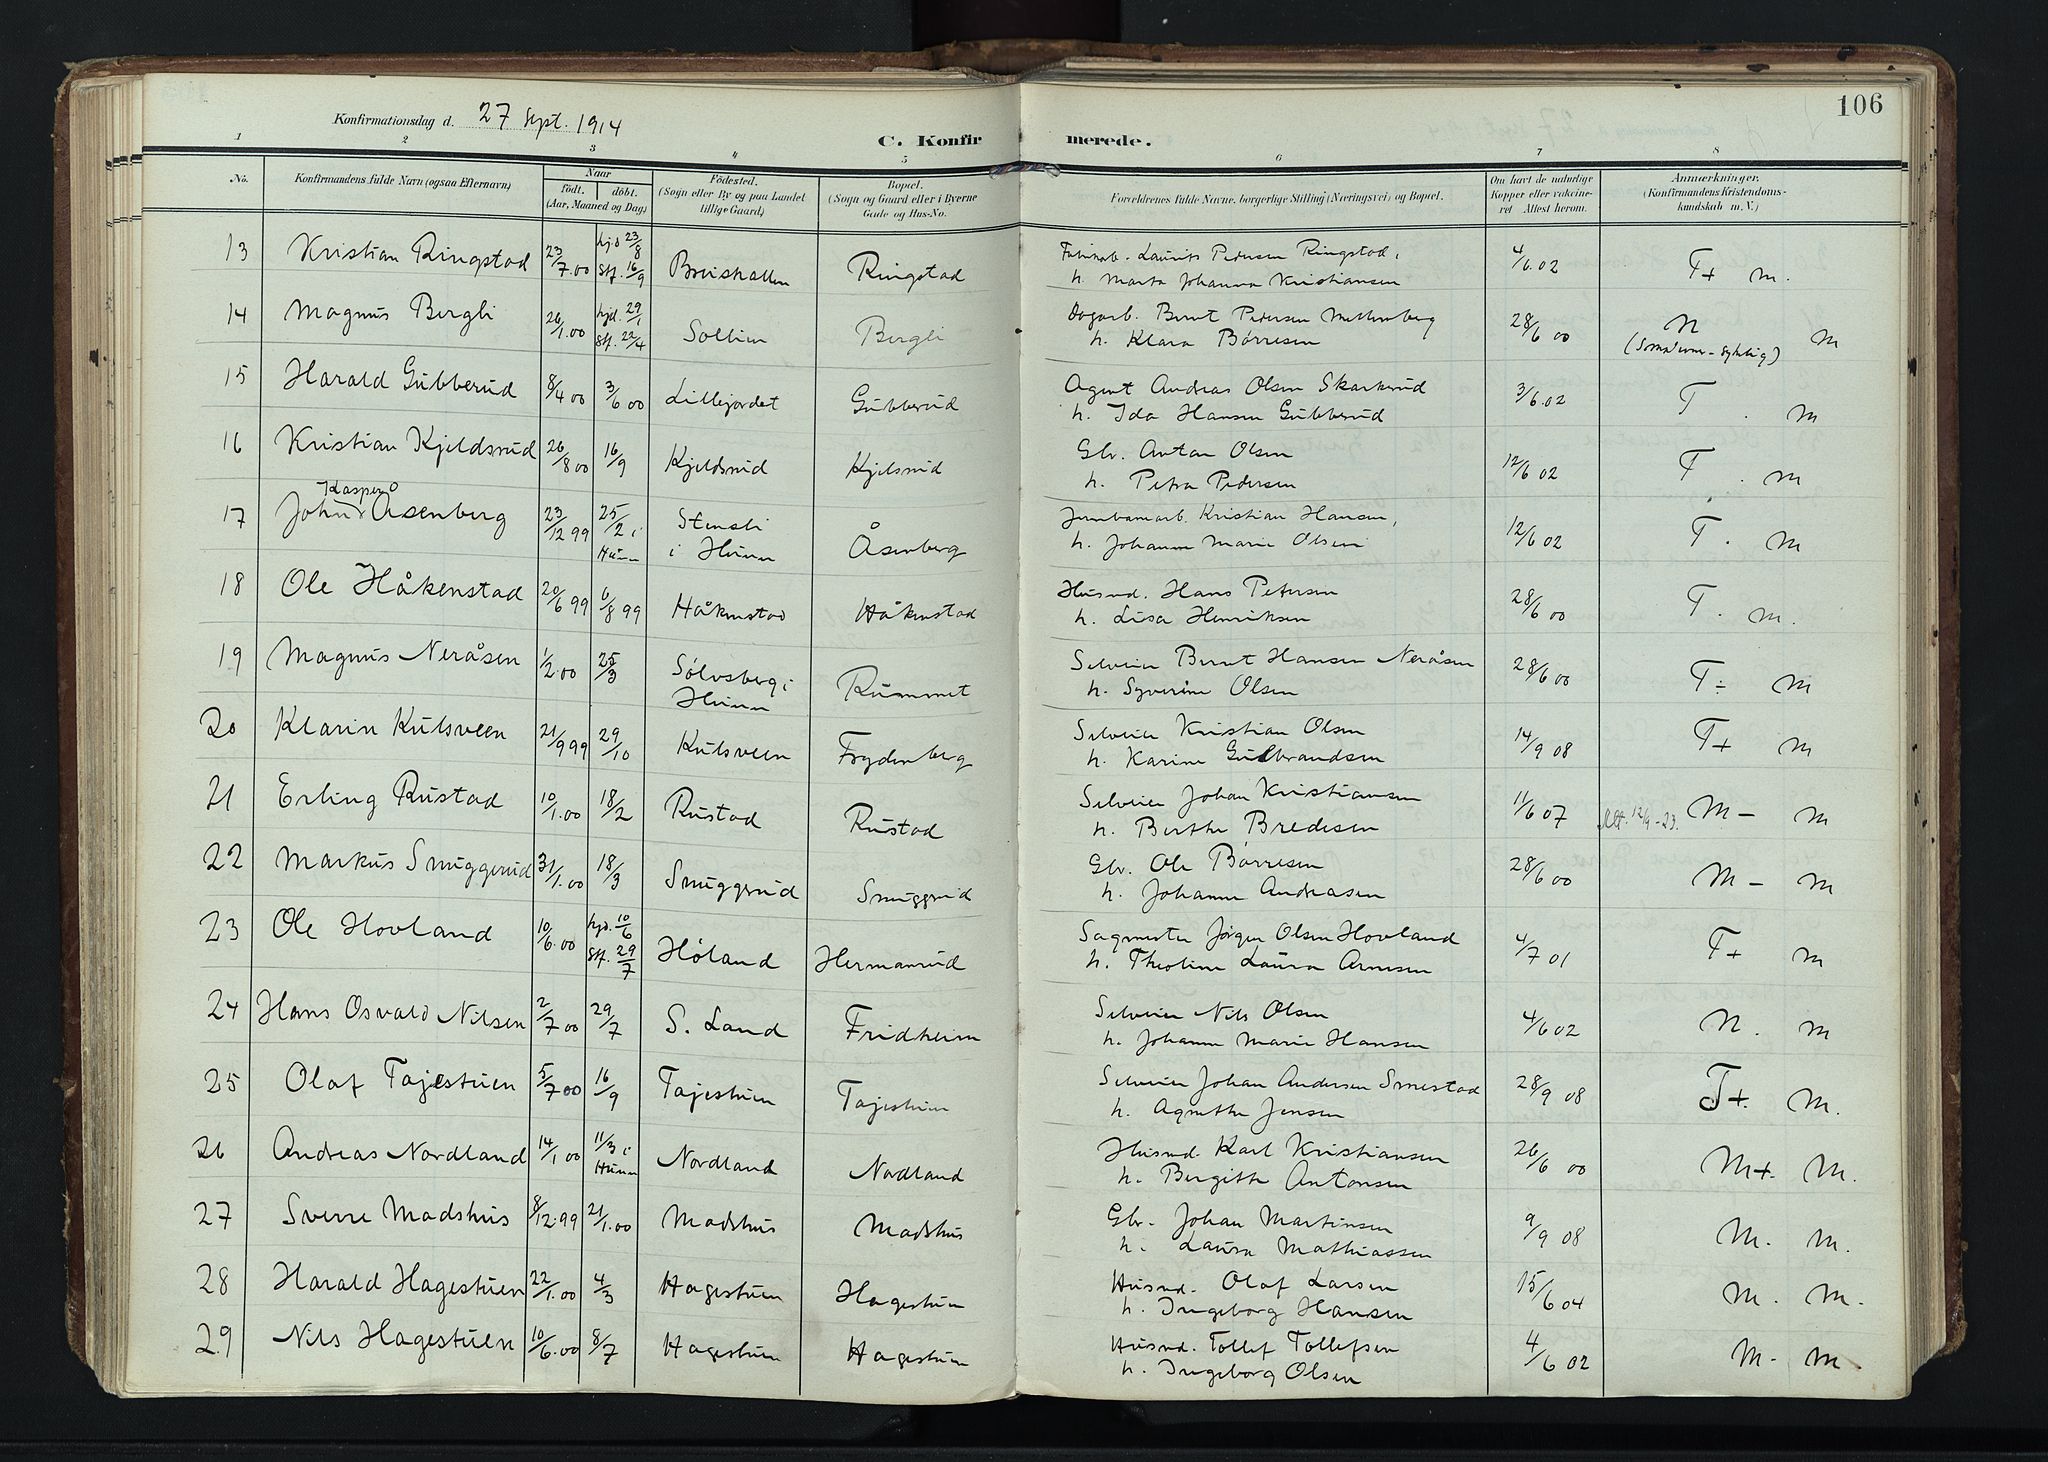 106
Konfirmationsdag d. 27 Sept. 1914
C. Konfirmerede.
1 2 3 4 5 6 7 8
No. Konfirmandens fulde Navn (ogsaa Efternavn) Naar født. døbt. (Aar, Maaned og Dag) Fødested. (Sogn eller By og paa Landet tillige Gaard) Bopæl. (Sogn og Gaard eller i Byerne Gade og Hus-No. Forældrenes fulde Navne, borgerlige Stilling (Næringsvei) og Bopæl. Om havt de naturlige Kopper eller vakcineret Attest herom. Anmærkninger. (Konfirmandens Kristendomskundskab m.V.)
13 Kristian Ringstad 23/7.00 hjd 23/8 Stf. 16/9 Ringstad Laurits Pedersen Ringstad, 4/6.02 T+ m.
h. Marta Johanna Kristiansen
14 Magnus Bergli 26/1.00 hjd. 29/1 Stf. 22/4 Sollien Bergli Dagarb. Bernt Pedersen 28/6 00 N m
h. Klara Børresen
15 Harald Gubberud 8/4 00 3/6 00 Lillejordet Gubberud Agent Andreas Olsen Skarkerud 3/6.02 T. m
h. Ida Hansen Gubberud
16 Kristian Kjeldsrud 26/8 00 16/9 Kjeldsrud Kjelsrud Gbr. Anton Olsen 12/6 02 T. m
h. Petra Pedersen
17 John Kasper Åsenberg 23/12 99 25/2 i Hunn Stensli i Hunn Åsenberg Jernbanearb. Kristian Hansen, 12/6 02 T. m
h. Johanne Marie Olsen
18 Ole Håkenstad 20/6 99 6/8 99 Håkenstad Håkenstad Husmd. Hans Petersen 28/6 00 T. m.
h. Lisa Henriksen
19 Magnus Neråsen 1/2.00 25/3 Sølvsberg i Hunn Rummet Selveier Bernt Hansen Neråsen 28/6 00 T÷ m
h. Syverine Olsen
20 Klarin Kulsveen 21/9 99 29/10 Kulsveen Frydenberg Selveier Kristian Olsen 14/9 08 T+ m
h. Karine Gulbrandsen
21 Erling Rustad 10/1.00 18/2 Rustad Rustad Selveier Johan Kristiansen 11/6 07 Att. 12/9-23. M- m
h. Berthe Bredesen
22 Markus Snuggerud 31/1.00 18/3 Snuggerud Snuggerud Gbr. Ole Børresen 28/6 00 M- m
h. Johanne Andreasen
23 Ole Hovland 10/6.00 hjd. 10/6 Stf. 29/7 Høland Hermanrud Sagmester Jørgen Olsen Hovland 4/7 01 T+ m
h. Theoline Laura Arnesen
24 Hans Osvald Nilsen 2/7 00 29/7 S. Land Fridheim Selveier Nils Olsen 4/6 02 N. m
h. Johanne Marie Hansen
25 Olaf Tajestuen 5/7 00 16/9 Tajestuen Tajestuen Selveier Johan Andersen Smestad 28/9 08 T+. m.
h. Agnethe Jensen
26 Andreas Nordland 14/1 00 11/3 i Hunn Nordland Nordland Husmd. Karl Kristiansen 26/6 00 M+. M.
h. Birgitte Antonsen
27 Sverre Madshus 8/12.99 21/1.00 Madshus Madshus Gbr. Johan Martinsen 9/9 08 M. M.
h. Laura Mathiassen
28 Harald Hagestuen 22/1.00 4/3 Hagestuen Hagestuen Husmd. Olaf Larsen 15/6 04 M. M.
h. Ingeborg Hansen
29 Nils Hagestuen 10/6.00 8/7 Hagestuen Hagestuen Husmd. Tollef Tollefsen 4/6 02 M. M.
h. Ingeborg Olsen